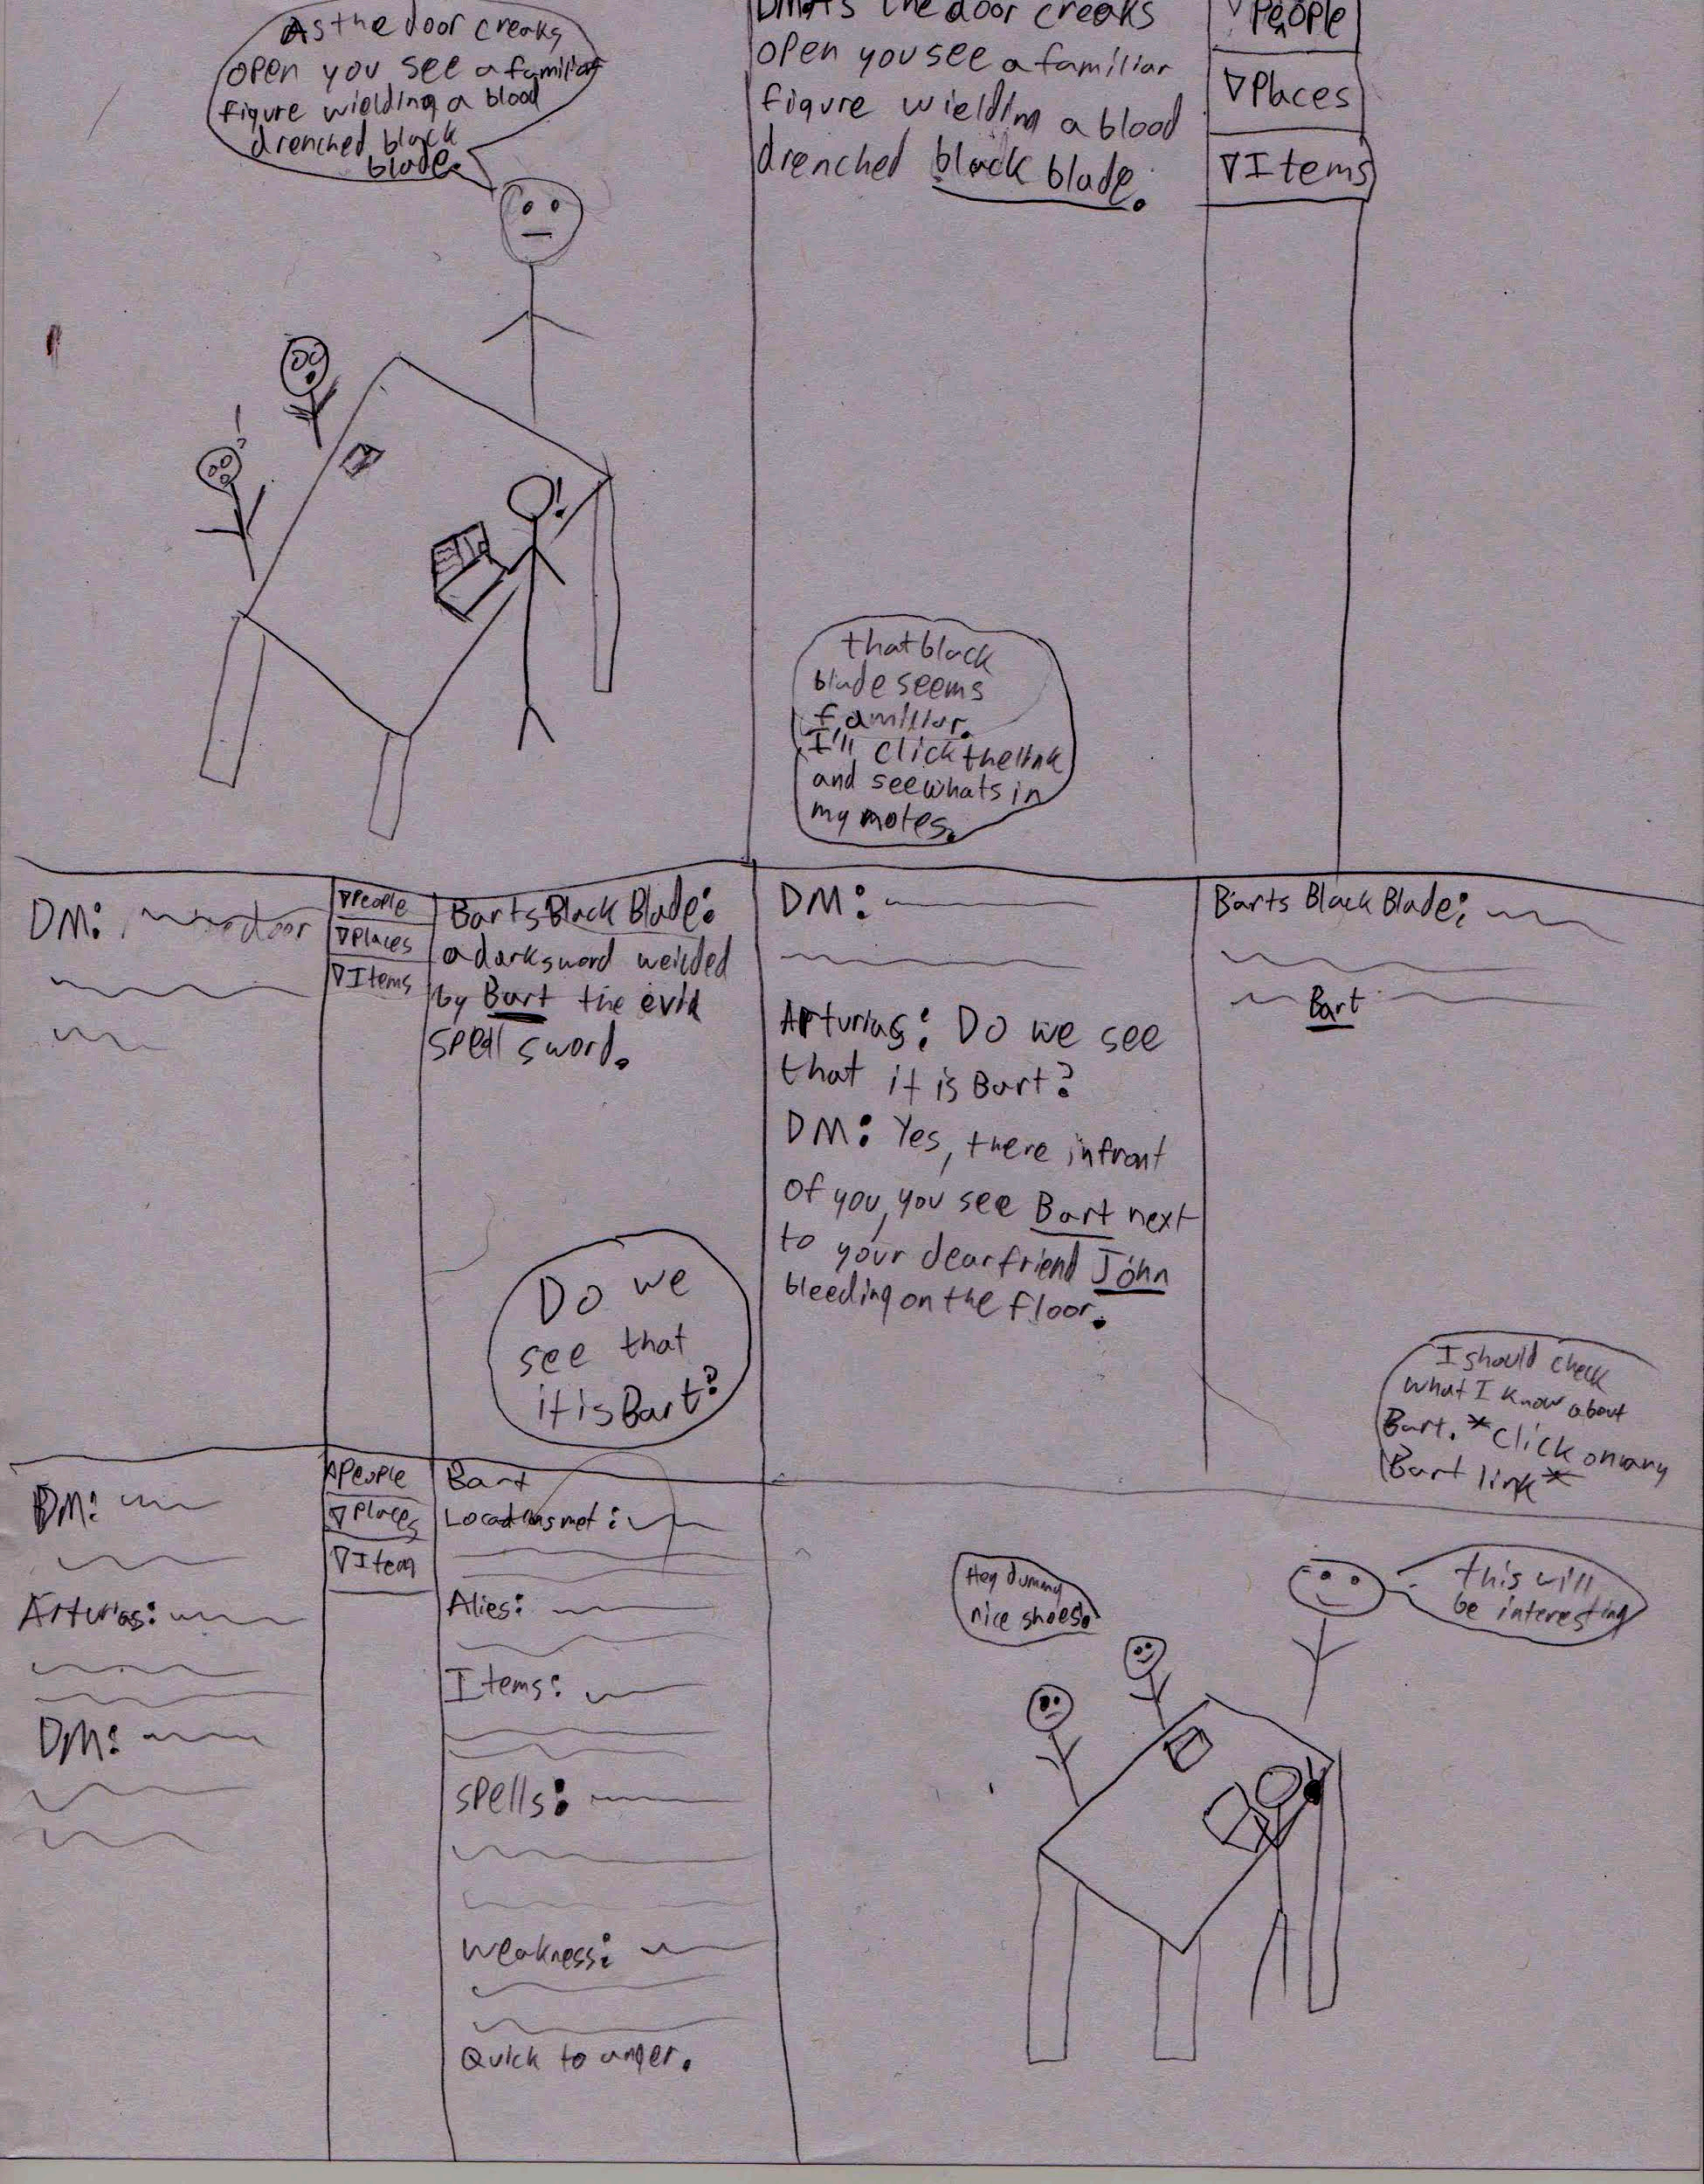 As the door creaks
open you see a familiar
figure wielding a blood
drenched black
blade.
DM: As the door creaks
open you see a familiar
figure wielding a blood
drenched black blade.
▽People
▽Places
▽Items
that black
blade seems
familiar.
I'll click the link
and see whats in
my notes.
DM: door
▽People
▽Places
▽Items
Barts Black Blade:
a dark sword weilded
by Bart the evil
spell sword.
Do we
see that
it is Bart?
DM:
Arturias: Do we see
that it is Bart?
DM: Yes, there infront
of you, you see Bart next
to your dear friend John
bleeding on the floor.
Barts Black Blade:
Bart
I should check
what I know about
Bart. *click on any
Bart link*
DM:
Arturias:
DM:
△People
▽Places
▽Item
Bart
Locations met:
Alies:
Items:
spells:
weakness:
Quick to anger.
Hey dummy
nice shoes!
this will
be interesting